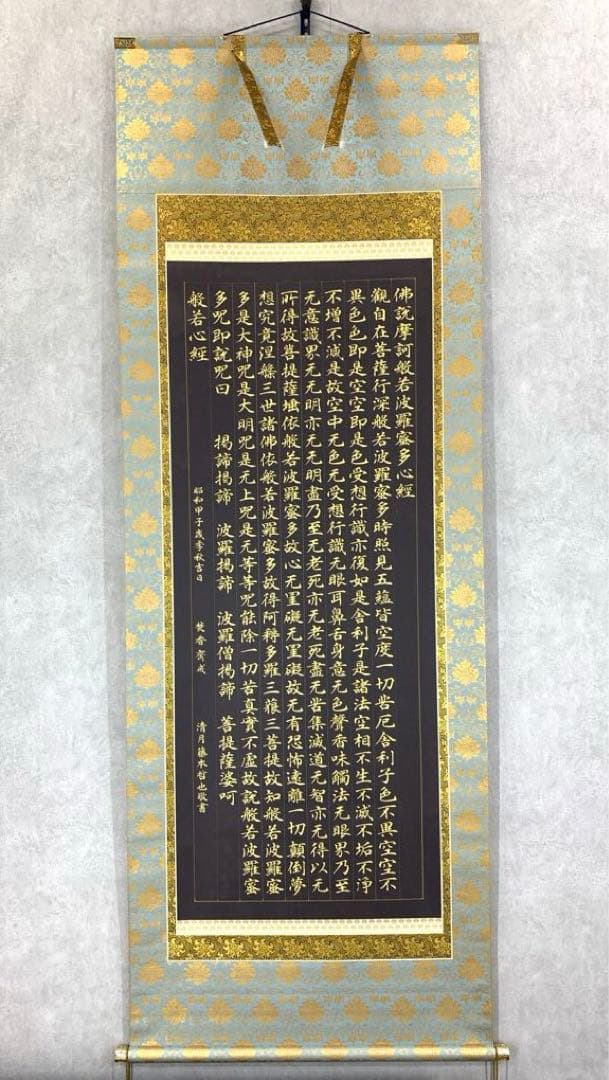 佛説摩訶般若波羅蜜多心經
觀自在菩薩行深般若波羅蜜多時照見五蘊皆空度一切苦厄舍利子色不異空空不
異色色即是空空即是色受想行識亦復如是舍利子是諸法空相不生不滅不垢不淨
不增不減是故空中无色无受想行識无眼耳鼻舌身意无色聲香味觸法无眼界乃至
无意識界无无明亦无无明盡乃至无老死亦无老死盡无苦集滅道无智亦无得以无
所得故菩提薩埵依般若波羅蜜多故心无罣礙无罣礙故无有恐怖遠離一切顛倒夢
想究竟涅槃三世諸佛依般若波羅蜜多故得阿耨多羅三藐三菩提故知般若波羅蜜
多是大神咒是大明咒是无上咒是无等等咒能除一切苦真實不虛故説般若波羅蜜
多咒即説咒曰 揭諦揭諦 波羅揭諦 波羅僧揭諦 菩提薩婆呵
般若心經
昭和甲子歳季秋吉日 焚香齋戒 清月藤本哲也敬書